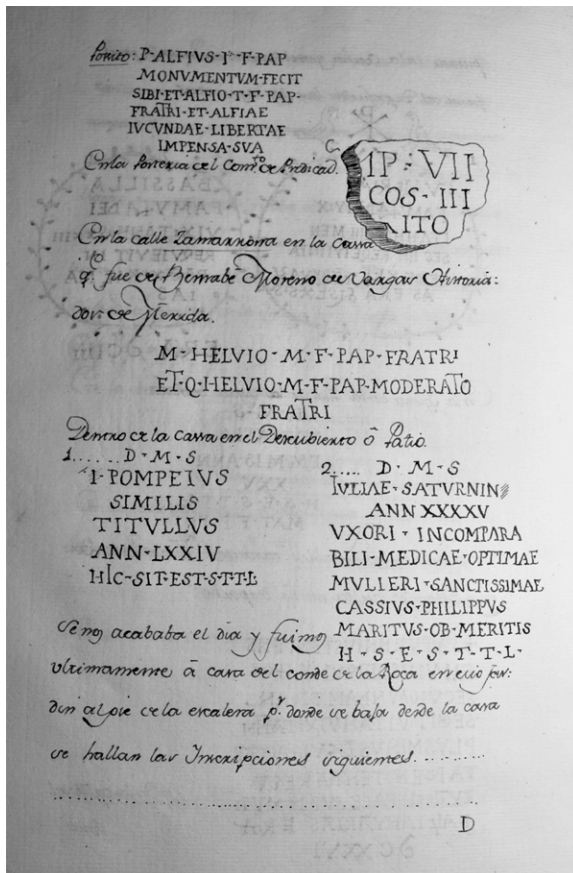 Porico: P·ALFIVS·I·F·PAP
MONVMENTVM·FECIT
SIBI·ET·ALFIO·T·F·PAP·
FRATRI·ET·ALFIAE
IVCVNDAE·LIBERTAE
IMPENSA·SVA
En la Porteria del Comto de Predicad.
IP·VII
COS·III
ITO
En la calle en la Casa
q. fue de Bernabe Moreno de Vargas Historia:
dor de Merida.
M·HELVIO·M·F·PAP·FRATRI
ET·Q·HELVIO·M·F·PAP·MODERATO
FRATRI
Dentro de la Casa en el Descubierto ô Patio.
1...... D·M·S
I·POMPEIVS
SIMILIS
TITVLLVS
ANN·LXXIV
HIC·SIT·EST·S·T·T·L
2.... D·M·S
IVLIAE·SATVRNIN
ANN XXXXV
VXORI·INCOMPARA
BILI·MEDICAE·OPTIMAE
MVLIERI·SANCTISSIMAE
CASSIVS·PHILIPPVS
MARITVS·OB·MERITIS
H·S·E·S·T·T·L·
Se nos acababa el dia y fuimos
ultimamente â casa del conde de la Roca en cuio jar:
din al pie de la escalera pr. donde se baja desde la casa
se hallan las Inscripciones siguientes..........
D